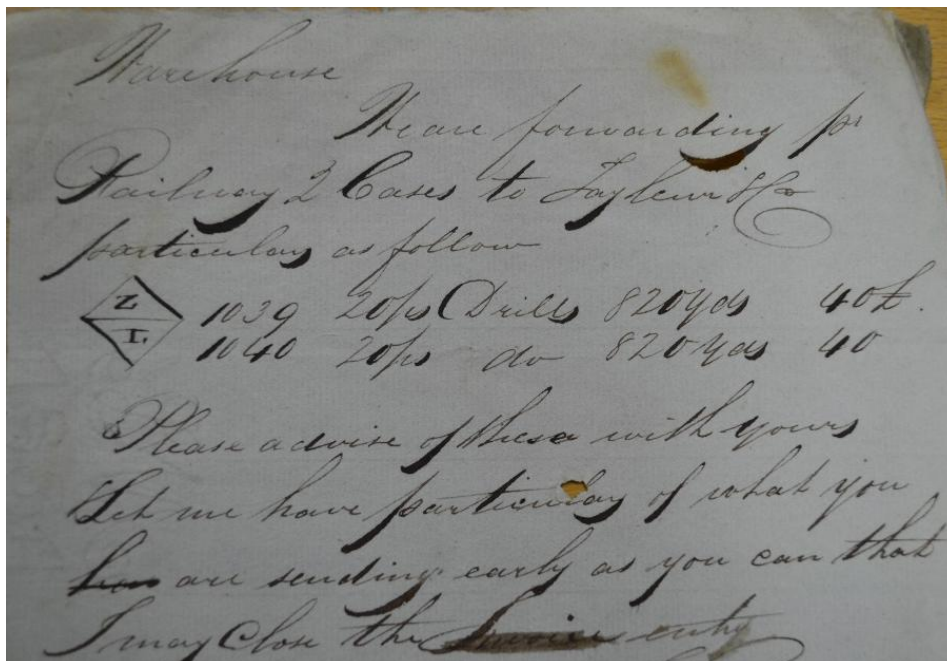 Warehouse
We are forwarding pr
Railway 2 Cases to Taylewr & Co
particulars as follow
Z 1039 20ps Drills 820yds 40£.
I. 1040 20ps do 820yds 40
Please advise of these with yours
& let me have particulars of what you
are sending early as you can that
I may Close the entry